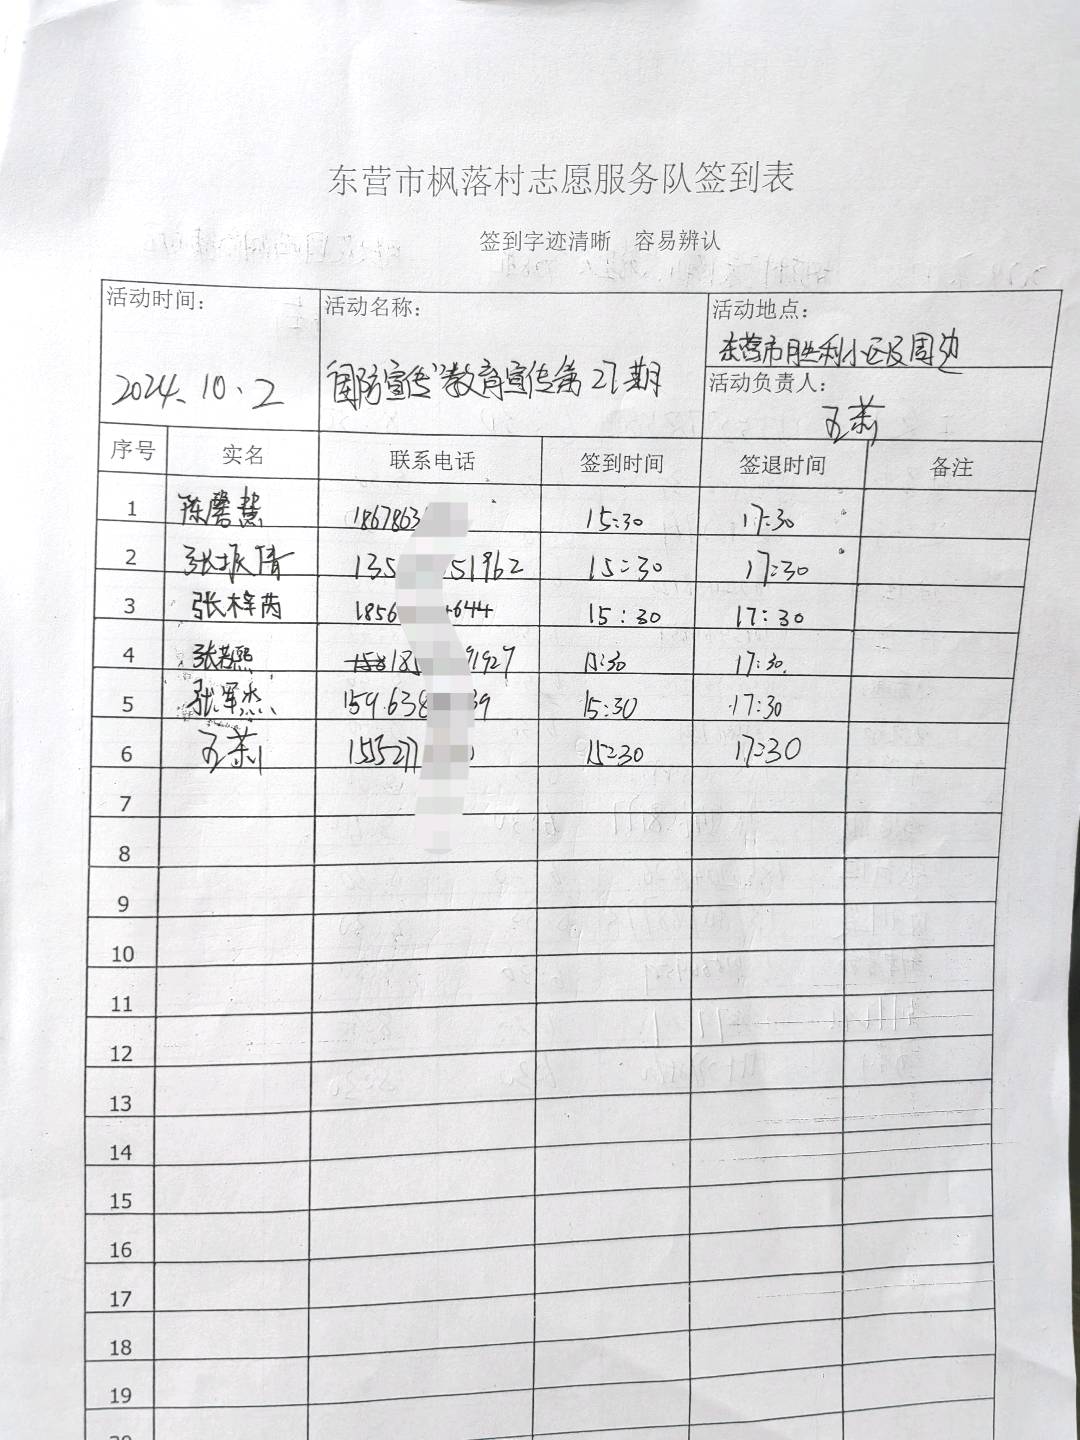 东营市枫落村志愿服务队签到表
签到字迹清晰 容易辨认
活动时间: 2024.10.2
活动名称: "国防宣传"教育宣传第27期
活动地点: 东营市胜利小区及周边
活动负责人: 王莉
序号 实名 联系电话 签到时间 签退时间 备注
1 陈馨慧 1867863 15:30 17:30
2 张振倩 135 51962 15:30 17:30
3 张梓芮 1856 644 15:30 17:30
4 张若熙 185 91927 15:30 17:30
5 张军杰 159.638 39 15:30 17:30
6 王莉 155271 15:30 17:30
7
8
9
10
11
12
13
14
15
16
17
18
19
20